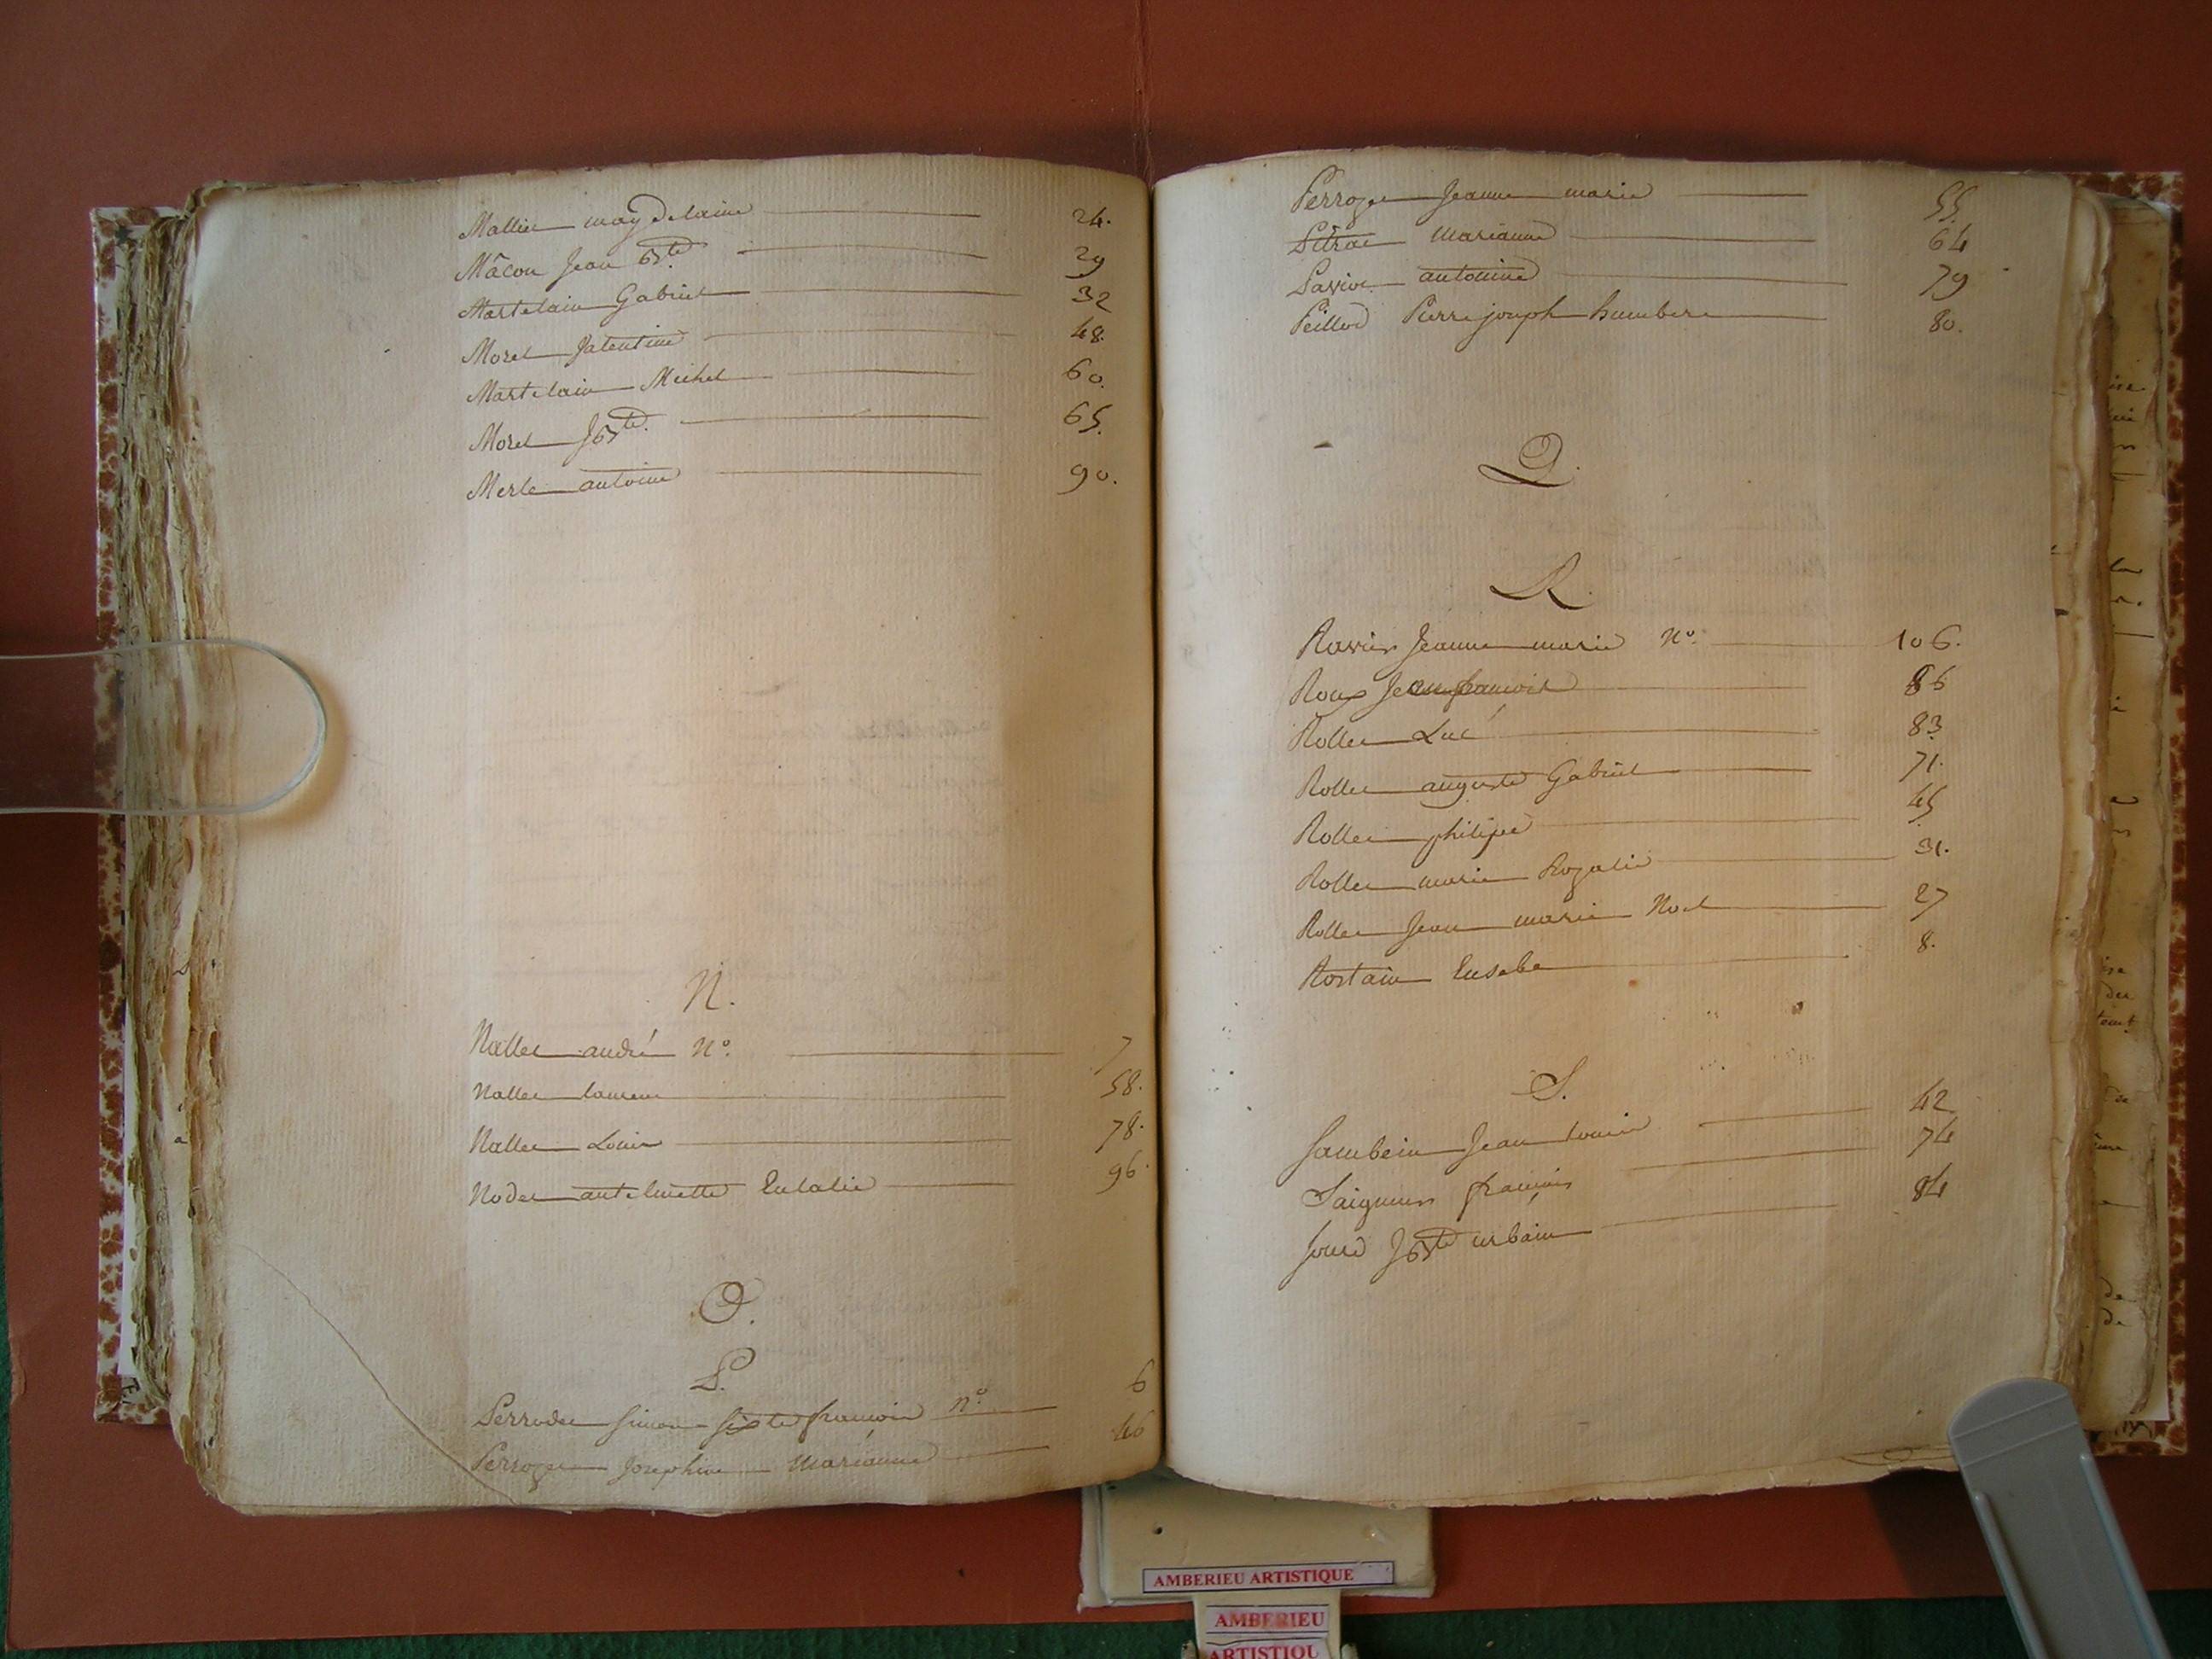 Mallet magdelaine 24.
Mâcon Jean Bste 29
Martelain Gabriel 32
Morel 48.
Martelain Michel 60.
Morel J Bste 65.
Merle antoine 90.
N.
Nallet andré N° 7
Nallet laurent 58.
Nallet Louis 78.
Nodet antelmette Eulalie 96.
O.
P.
Perrodet Simon Sixte françois n° 6
Perrozet Josephine Marianne 46
Perrozet Jeanne marie 55.
Pitrat Marianne 64
Pavion antoine 79
Peillod Pierre joseph humbert 80.
Q.
R.
Ravier Jeanne marie N° 106.
Roux Jean françois 86
Rollet Luc 83
Rollet auguste Gabriel 71.
Rollet philipe 45
Rollet marie Rozalie 31.
Rollet Jean marie Noel 27
Rostain Eusebe 8.
S.
Sambein Jean Louis 42
Saigneux françois 74
Sourd J Bste urbain 84
AMBERIEU ARTISTIQUE
AMBERIEU
ARTISTIQU